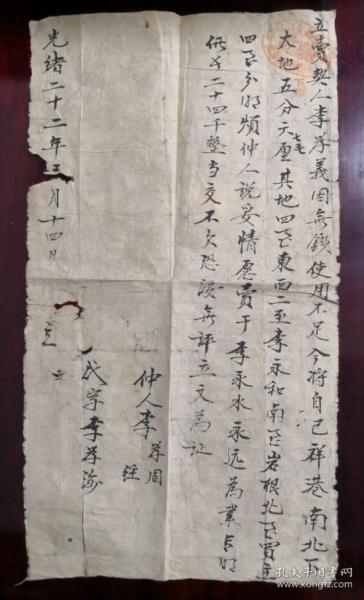 立賣契人李孝義因無錢使用不足今將自己祥巷南北下
大地五分六厘七毛其地四至東西二至李永和南至岩根北至買主
四至分明煩仲人說妥情愿賣于李永水永远為業言明
價錢二十四千整当交不欠恐後無評立文為証
仲人李孝周
代字李孝海
光緒二十二年三月十四日
立
孔夫子旧书网